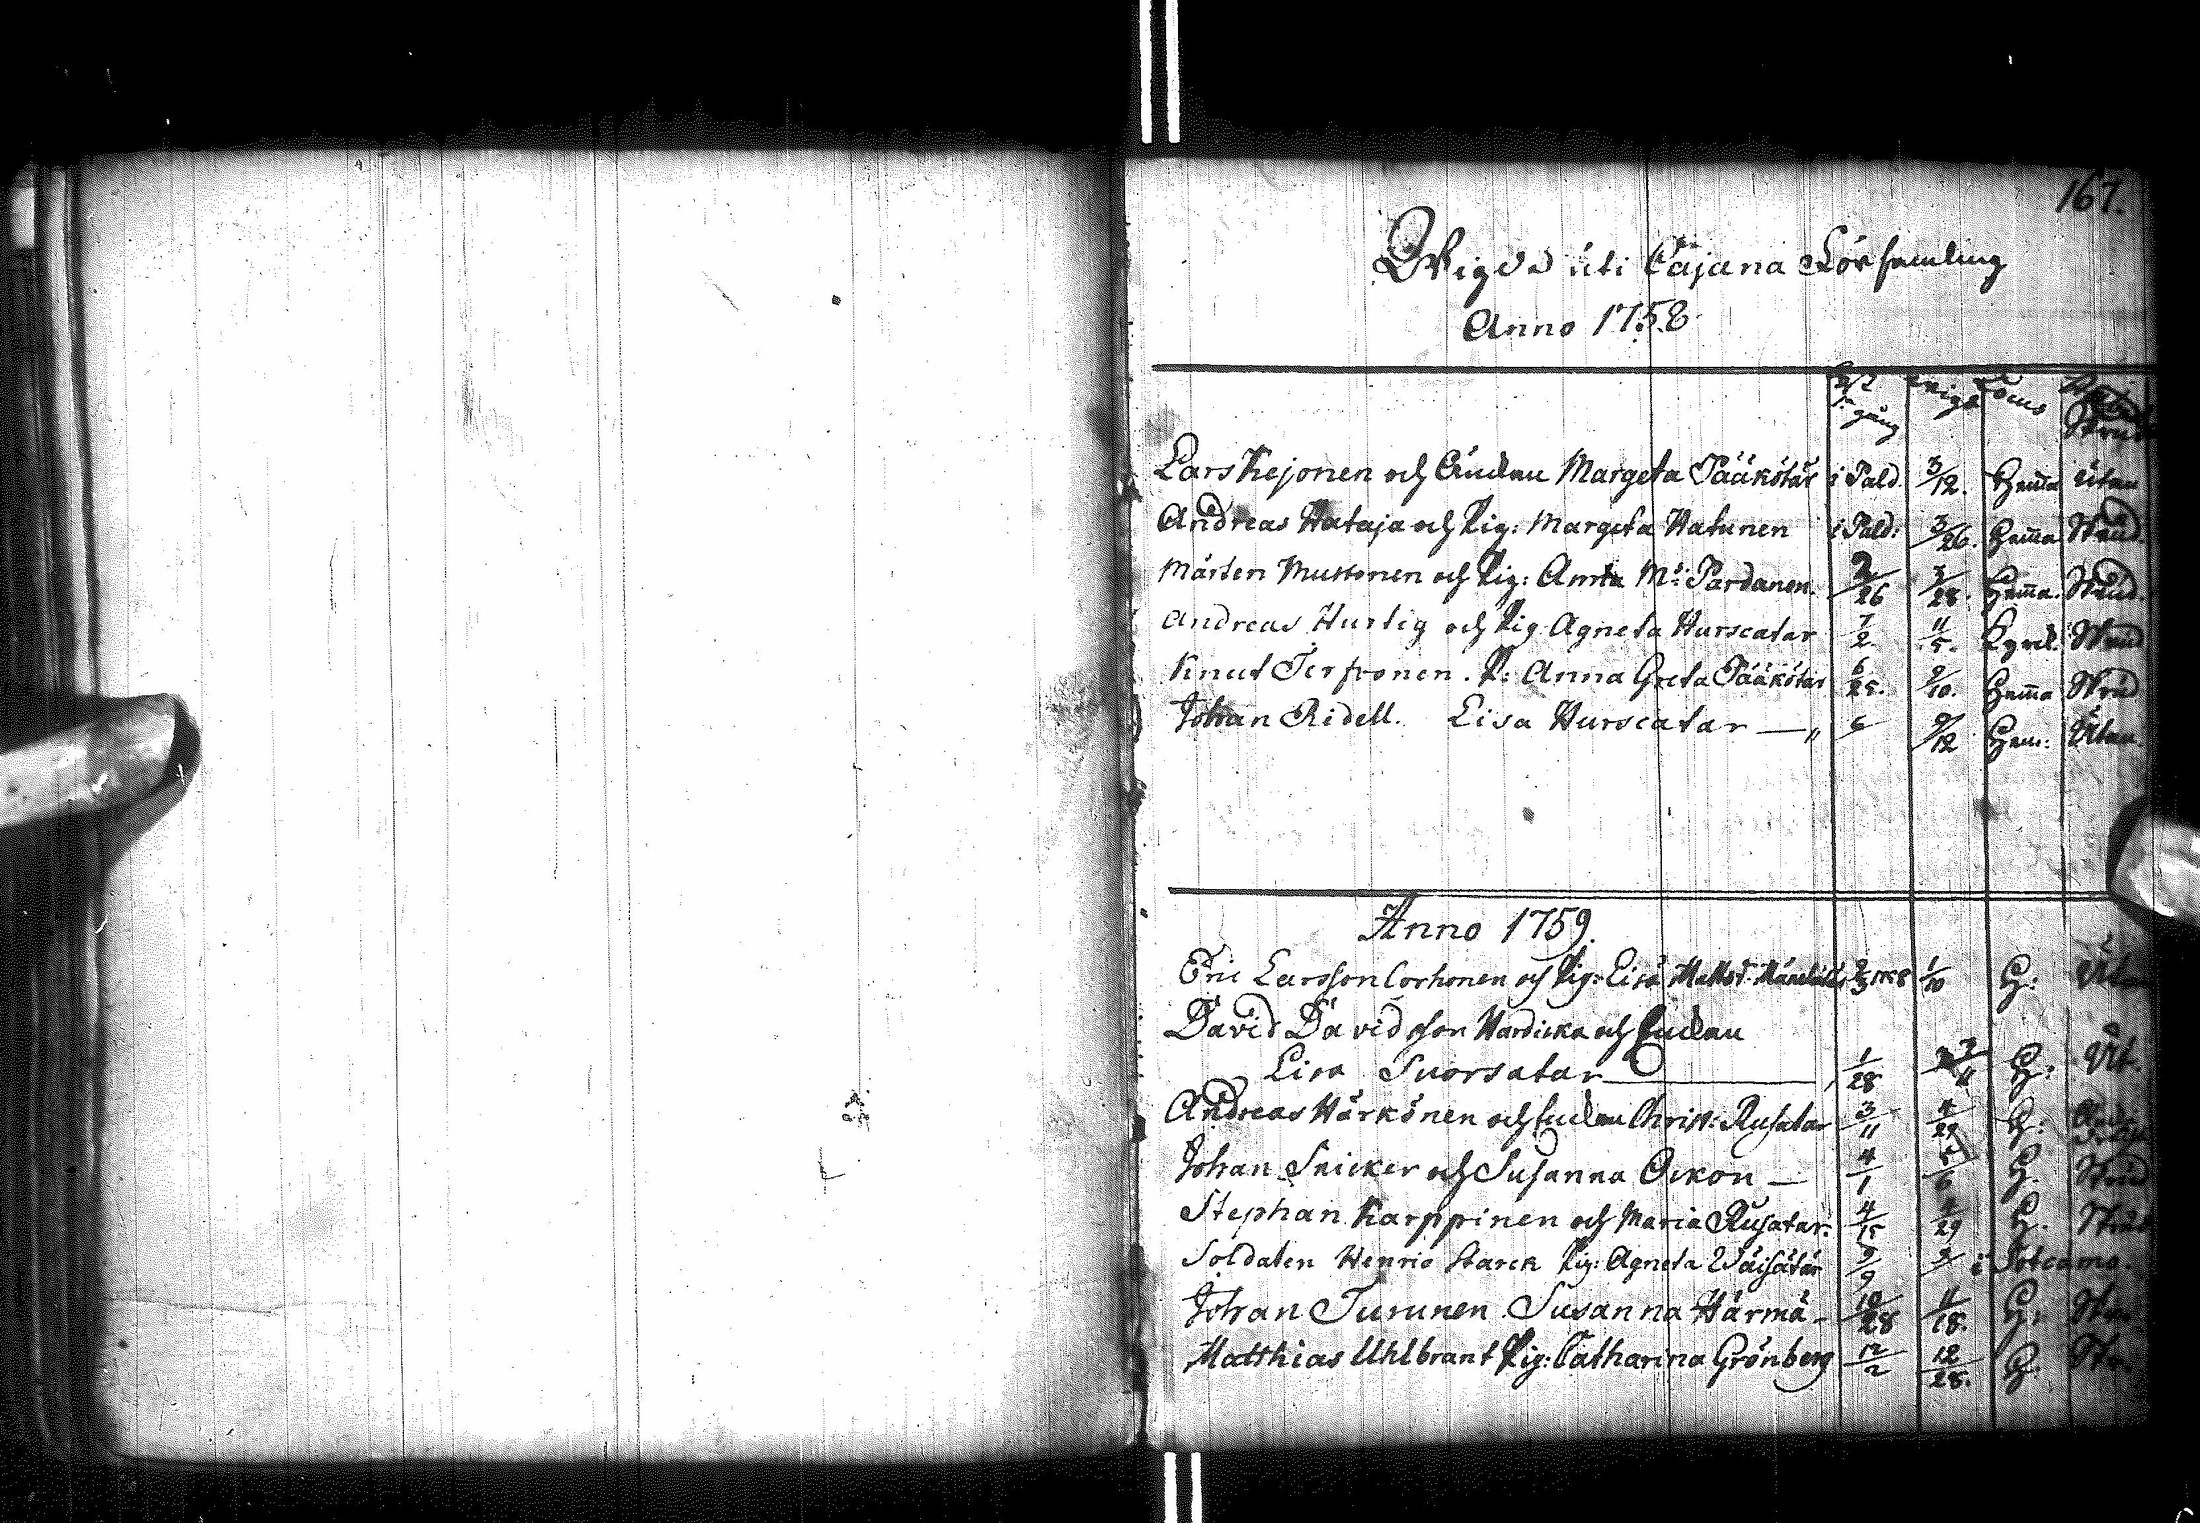 167.
Wigde uti Cajana Församling
Anno 1758
1:a gång Wigde Locus
Lars Kejonen och Änckan Margeta Pääkötär i Pald. 3/12. Hemma Utan
Andreas Hataja och Pig: Margeta Hatunen i Pald: 3/26. Hemma Skrud.
Mårten Mustonen och Pig: Anna M: Pardanen. 2/26 3/28. Hemma. Skrud.
Andreas Hurtig och Pig Agneta Hurscatar 7/2. 11/5. Kyrck: Skrud
Knut Terfvonen. P: Anna Greta Pääkötär 6/25. 9/10. Hemma Skrud
Johan Ridell. Lisa Hurscatar — „ 6 9/12 Hem: Utan.
Anno 1759.
Eric Larsson Corhonen och Pig: Lisa Matts d: 1758 1/10 H: Utan
David Davidsson Hardicka och Enckan
Lisa Suorsatar 1/28 H: Ut.
Andreas Härkönen och Enckan Christ: Rusatar 3/11 4/29 H:
Johan Snicker och Susanna Ockon — 4/1 H. Skrud
Stephan Karppinen och Maria Rusatar: 4/15 29 H. Skrud
Soldaten Henric Starck Pig: Agneta Wäisätär 9/9 9 i Sotcamo.
Johan Turunen Susanna Härmä - 10/28 11/18. H:
Matthias Uhlbrant Pig: Catharina Grönberg 12/2 12/28. H.